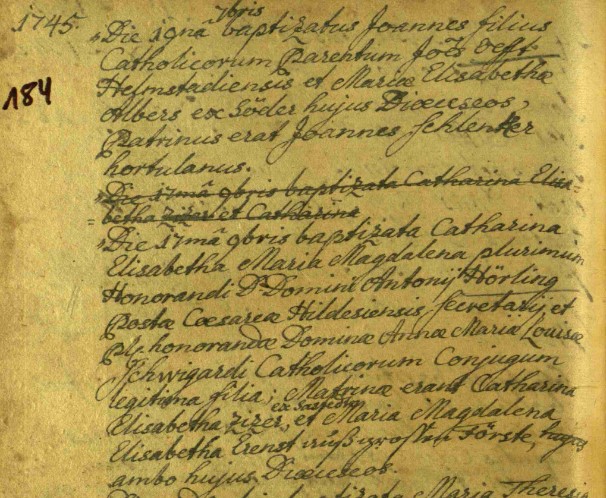 1745.
7bris
Die 19nâ baptizatus Joannes filius
Catholicorum Parentum Joês
Helmstadiensis et Mariæ Elisabethæ
Albers ex Söder hujus Dioeceseos,
184
Patrinus erat Joannes Schlenker
hortulanus.
Die 17mâ 9bris baptizata Catharina Elisa-
betha zizer et Catharina
Die 17mâ 9bris baptizata Catharina
Elisabetha Maria Magdalena plurimum
Honorandi D. Domini Antonij Hörling
Postæ Cæsareæ Hildesiensis Secretarij et
honorandæ Dominæ Annæ Mariæ Louisæ
Schwigardi Catholicorum Conjugum
legitima filia; Matrinæ erant Catharina
Elisabetha zizer, et Maria Magdalena
Elisabetha Erenst Förste, hujus
ambo hujus Dioeceseos.
baptizata Maria Theresia